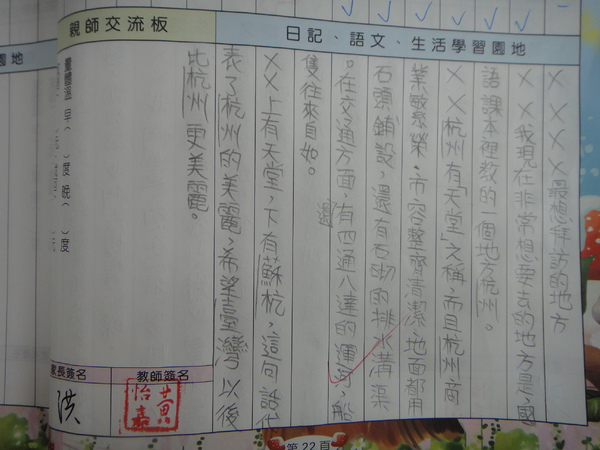 親師交流板
日記、語文、生活學習園地
XXXX最想拜訪的地方
XX我現在非常想要去的地方是,國
語課本裡教的一個地方杭州。
XX杭州有「天堂」之稱,而且杭州商
業繁榮,市容整齊清潔,地面都用
石頭鋪設,還有石砌的排水溝渠
。在交通方面,還有四通八達的運河,船
隻往來自如。
XX上有天堂,下有蘇杭,這句話代
表了杭州的美麗,希望臺灣以後
比杭州更美麗。
量體溫 早( )度晚( )度
家長簽名
洪
教師簽名
黃怡嘉
第22頁
園地